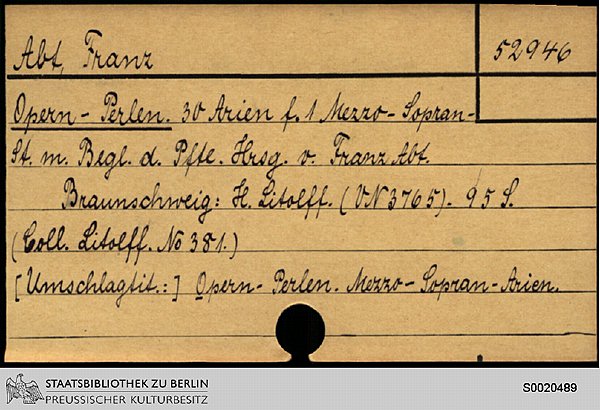 Abt, Franz 52946
Opern-Perlen. 30 Arien f. 1 Mezzo-Sopran-
St. m. Begl. d. Pfte. Hrsg. v. Franz Abt.
Braunschweig: H. Litolff. (VN 3765). 95 S.
(Coll. Litolff. No 381.)
[Umschlagtit.:] Opern-Perlen. Mezzo-Sopran-Arien.
STAATSBIBLIOTHEK ZU BERLIN
PREUSSISCHER KULTURBESITZ
S0020489